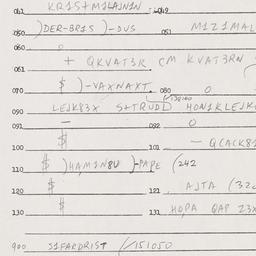 041 KR1S+M1LAJN1N 042
050 )DER-BR1S)-DVS 051 M1Z1MAL
060 0
061 + QKVAT3R CM KVAT3RN
070 $ )-VAXNAXT. 080 0.
090 LEJK83X S+TRUDL HON1KLEJK
091 — 092 0
100 $ 101 - QCACK81
110 $ )HAM1N8U )-PAPE (242
120 $ 121 . AJTA (32
130 $ 131 HOPA QAP 23X
900 S1FARDR1ST //151050